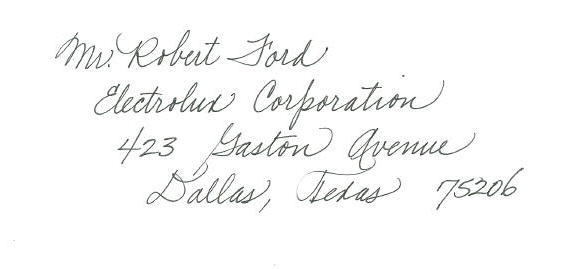 Mr. Robert Ford
Electrolux Corporation
423 Gaston Avenue
Dallas, Texas 75206